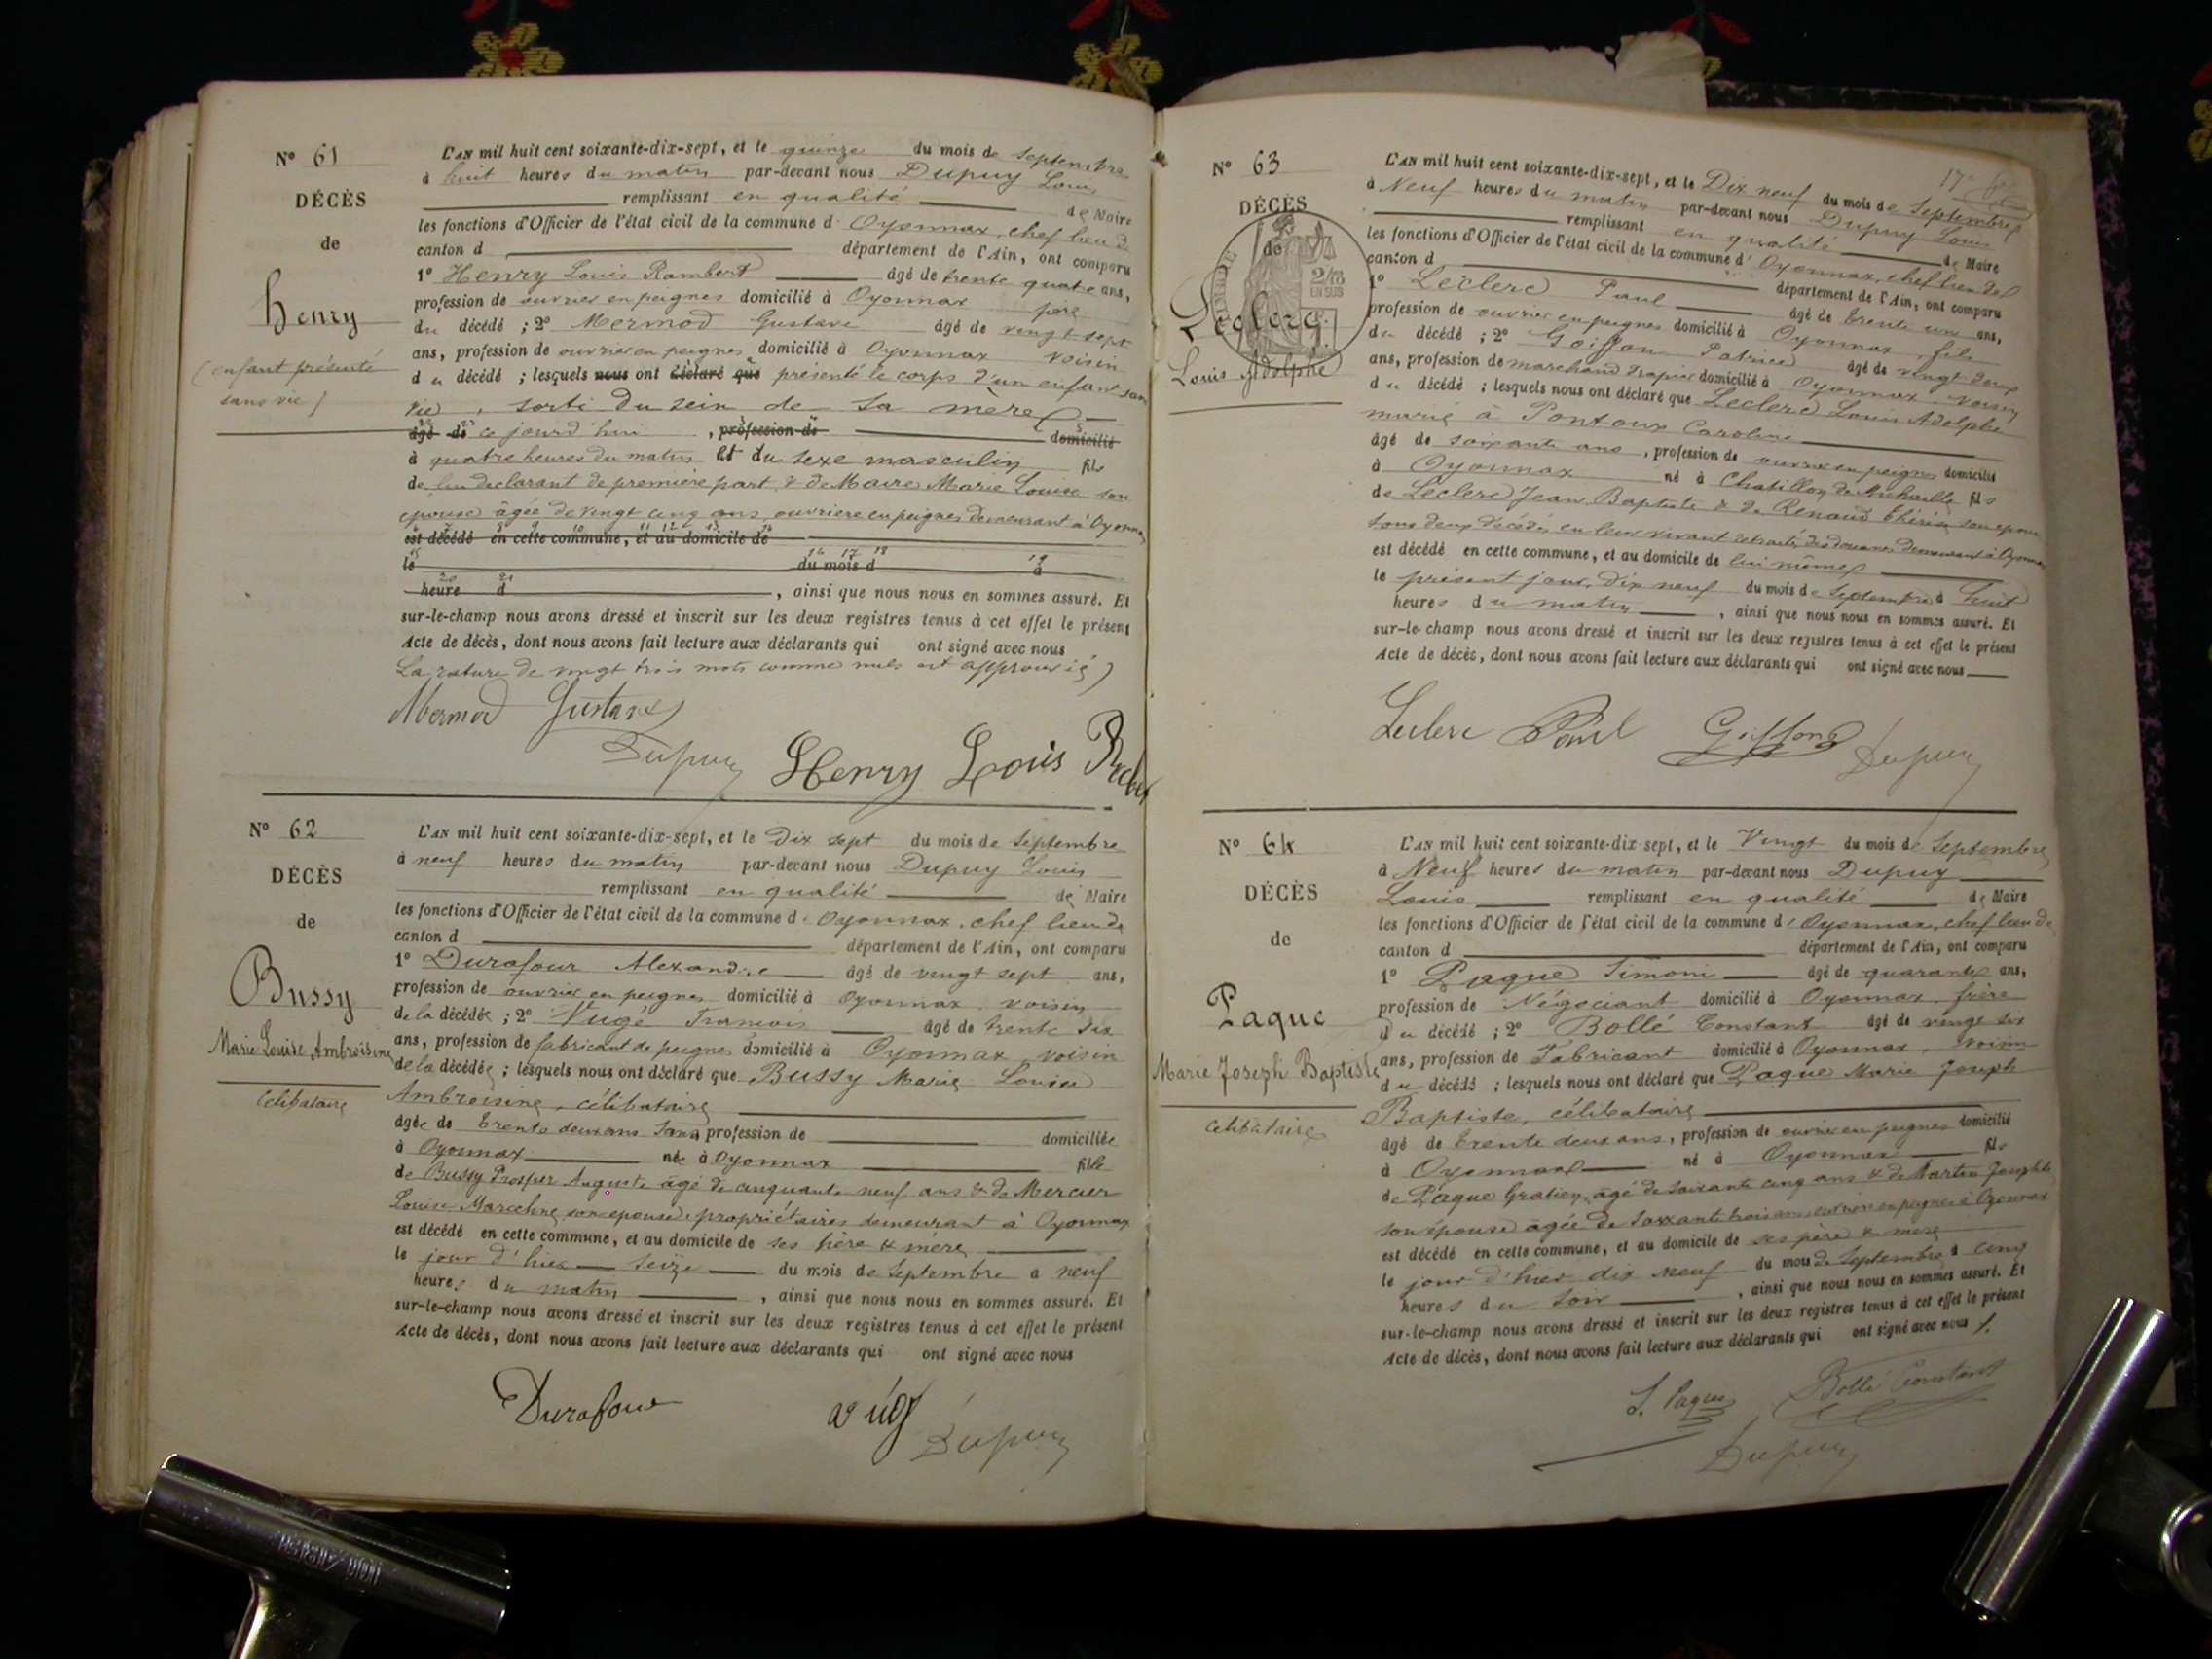 N° 61
DÉCÈS
de
Henry
(enfant présenté
sans vie)
L'AN mil huit cent soixante-dix-sept, et le quinze du mois de Septembre
à huit heures du matin par-devant nous Dupuy Louis
remplissant en qualité de Maire
les fonctions d'Officier de l'état civil de la commune d'Oyonnax, chef lieu de
canton d département de l'Ain, ont comparu
1° Henry Louis Rambert âgé de trente quatre ans,
profession de ouvrier en peignes domicilié à Oyonnax père
du décédé ; 2° Mermod Gustave âgé de vingt sept
ans, profession de ouvrier en peignes domicilié à Oyonnax voisin
du décédé ; lesquels nous ont déclaré que présenté le corps d'un enfant sans
vie, sorti du sein de sa mère
âgé de ce jourd'hui , profession de domicilié
à quatre heures du matin et du sexe masculin fils
de lui déclarant de première part & de Maire Marie Louise son
épouse âgée de vingt cinq ans ouvrière en peignes demeurant à Oyonnax
est décédé en cette commune, et au domicile de
le du mois d à
heure d , ainsi que nous nous en sommes assuré. Et
sur-le-champ nous avons dressé et inscrit sur les deux registres tenus à cet effet le présent
Acte de décès, dont nous avons fait lecture aux déclarants qui ont signé avec nous
La rature de vingt trois mots comme nuls est
Mermod Gustave
Dupuy Henry Louis
N° 62
DÉCÈS
de
Bussy
Marie Louise Ambroisine
Célibataire
L'AN mil huit cent soixante-dix-sept, et le dix sept du mois de Septembre
à neuf heures du matin par-devant nous Dupuy Louis
remplissant en qualité de Maire
les fonctions d'Officier de l'état civil de la commune d'Oyonnax, chef lieu de
canton d département de l'Ain, ont comparu
1° Durafour Alexandre âgé de vingt sept ans,
profession de ouvrier en peignes domicilié à Oyonnax voisin
de la décédée ; 2° Vugé François âgé de trente six
ans, profession de fabricant de peignes domicilié à Oyonnax voisin
de la décédée ; lesquels nous ont déclaré que Bussy Marie Louise
Ambroisine, célibataire
âgée de trente deux ans sans profession de domiciliée
à Oyonnax née à Oyonnax fille
de Bussy Prosper Auguste âgé de cinquante neuf ans & de Mercier
Louise Marceline son épouse propriétaires demeurant à Oyonnax
est décédé en cette commune, et au domicile de ses père & mère
le jour d'hier seize du mois de Septembre à neuf
heures du matin , ainsi que nous nous en sommes assuré. Et
sur-le-champ nous avons dressé et inscrit sur les deux registres tenus à cet effet le présent
Acte de décès, dont nous avons fait lecture aux déclarants qui ont signé avec nous
Durafour Dupuy
N° 63
DÉCÈS
de
Leclerc
Louis Adolphe
2/10
EN SUS
L'AN mil huit cent soixante-dix-sept, et le Dix neuf du mois de Septembre
à Neuf heures du matin par-devant nous Dupuy Louis
remplissant en qualité de Maire
les fonctions d'Officier de l'état civil de la commune d'Oyonnax, chef lieu de
canton d département de l'Ain, ont comparu
1° Leclerc Paul âgé de trente un ans,
profession de ouvrier en peignes domicilié à Oyonnax, fils
du décédé ; 2° Goiffon Patrice âgé de vingt deux
ans, profession de marchand drapier domicilié à Oyonnax voisin
du décédé ; lesquels nous ont déclaré que Leclerc Louis Adolphe
marié à Pontoux Caroline
âgé de soixante ans, profession de ouvrier en peignes domicilié
à Oyonnax né à Chatillon de Michaille fils
de Leclerc Jean Baptiste & de Renaud Thérèse son épouse
tous deux décédés en leur vivant retraités des douanes demeurant à Oyonnax
est décédé en cette commune, et au domicile de lui même
le présent jour, dix neuf du mois de Septembre à huit
heures du matin , ainsi que nous nous en sommes assuré. Et
sur-le-champ nous avons dressé et inscrit sur les deux registres tenus à cet effet le présent
Acte de décès, dont nous avons fait lecture aux déclarants qui ont signé avec nous
Leclerc Paul Goiffon Dupuy
N° 64
DÉCÈS
de
Paque
Marie Joseph Baptiste
Célibataire
L'AN mil huit cent soixante-dix-sept, et le Vingt du mois de Septembre
à Neuf heures du matin par-devant nous Dupuy
Louis remplissant en qualité de Maire
les fonctions d'Officier de l'état civil de la commune d'Oyonnax, chef lieu de
canton d département de l'Ain, ont comparu
1° Paque Simoni âgé de quarante ans,
profession de Négociant domicilié à Oyonnax, frère
du décédé ; 2° Bollé Constant âgé de vingt six
ans, profession de Fabricant domicilié à Oyonnax, voisin
du décédé ; lesquels nous ont déclaré que Paque Marie Joseph
Baptiste, célibataire
âgé de trente deux ans, profession de ouvrier en peignes domicilié
à Oyonnax né à Oyonnax fils
de Paque Gratien, âgé de soixante cinq ans & de Martin Josephte
son épouse âgée de soixante trois ans ouvriers en peignes à Oyonnax
est décédé en cette commune, et au domicile de ses père & mère
le jour d'hier dix neuf du mois de Septembre à cinq
heures du soir , ainsi que nous nous en sommes assuré. Et
sur-le-champ nous avons dressé et inscrit sur les deux registres tenus à cet effet le présent
Acte de décès, dont nous avons fait lecture aux déclarants qui ont signé avec nous
S. Paque Bollé Constant
Dupuy